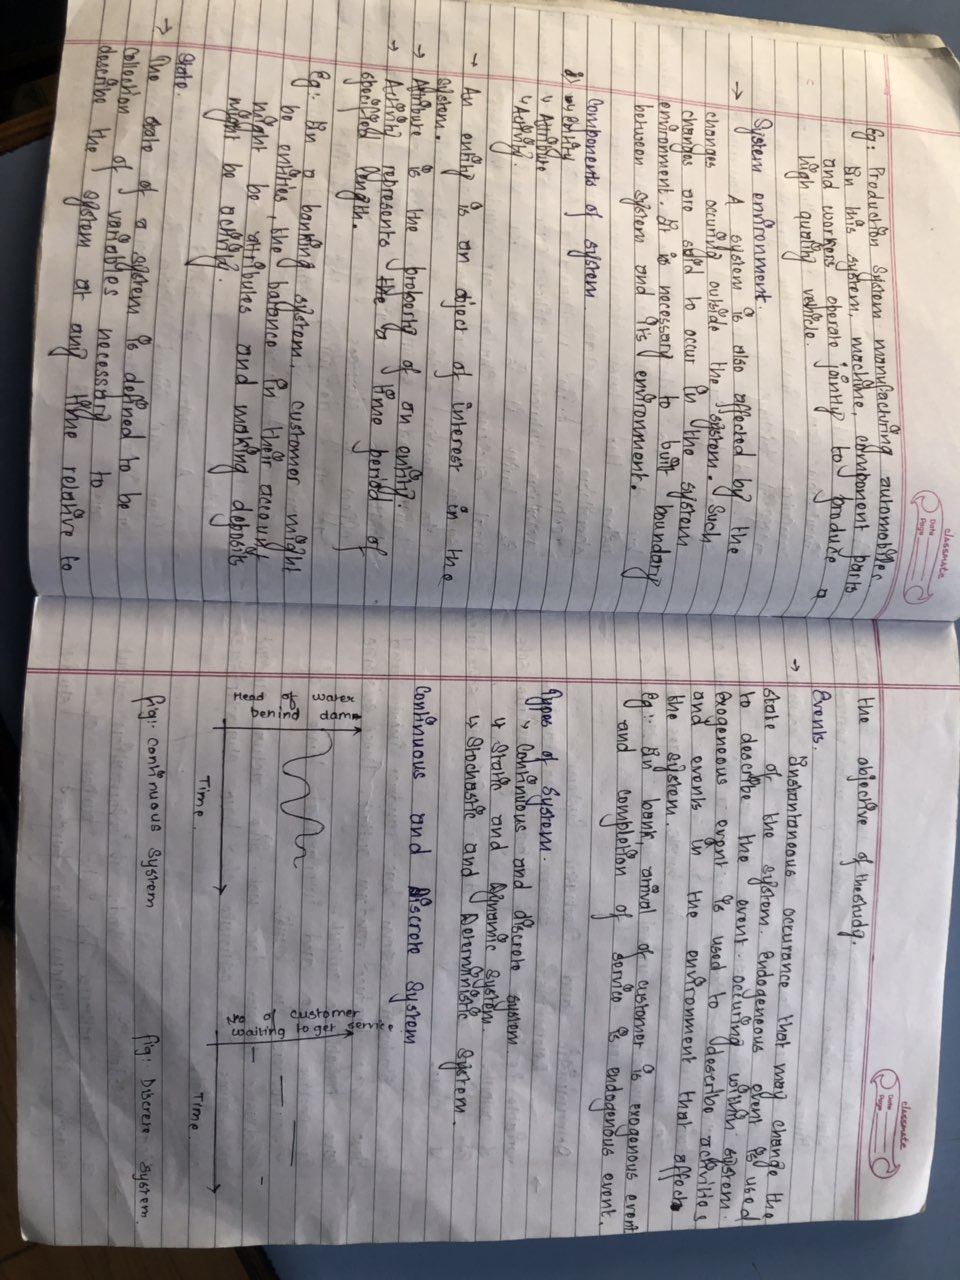 classmate
Date
Page
Eg: Production System manufacturing automobiles
In this system, machine, component parts
and workers operate jointly to produce a
high quality vehicle.
→ System environment.
A system is also affected by the
changes occuring outside the system. Such
changes are said to occur in the system
environment. It is necessary to built boundary
between system and its environment.
Components of system
↳ Entity
↳ Attribute
↳ Activity.
→ An entity is an object of interest in the
System.
→ Attribute is the property of an entity.
→ Activity represents the a time period of
specified length.
Eg: In a banking system, customer might
be entities, the balance in their account
might be attributes and making deposits
might be activity.
State.
→ The state of a system is defined to be
Collection of variables necessary to
describe the system at any time relative to
classmate
Date
Page
the objective of the study.
→ Events.
Instantaneous occurance that may change the
state of the system. endogeneous event is used
to describe the event occuring within system.
Exogeneous event is used to describe activities
and events in the environment that affect
the system.
Eg: In bank, arrival of customer is exogenous event
and completion of service is endogenous event.
Types of System.
↳ Continuous and discrete system
↳ Static and Dynamic system
↳ Stochastic and Deterministic System.
Continuous and Discrete System
Head of water
behind dam
Time.
fig: Continuous System
No of customer
waiting to get service
Time.
fig: Discrete System.